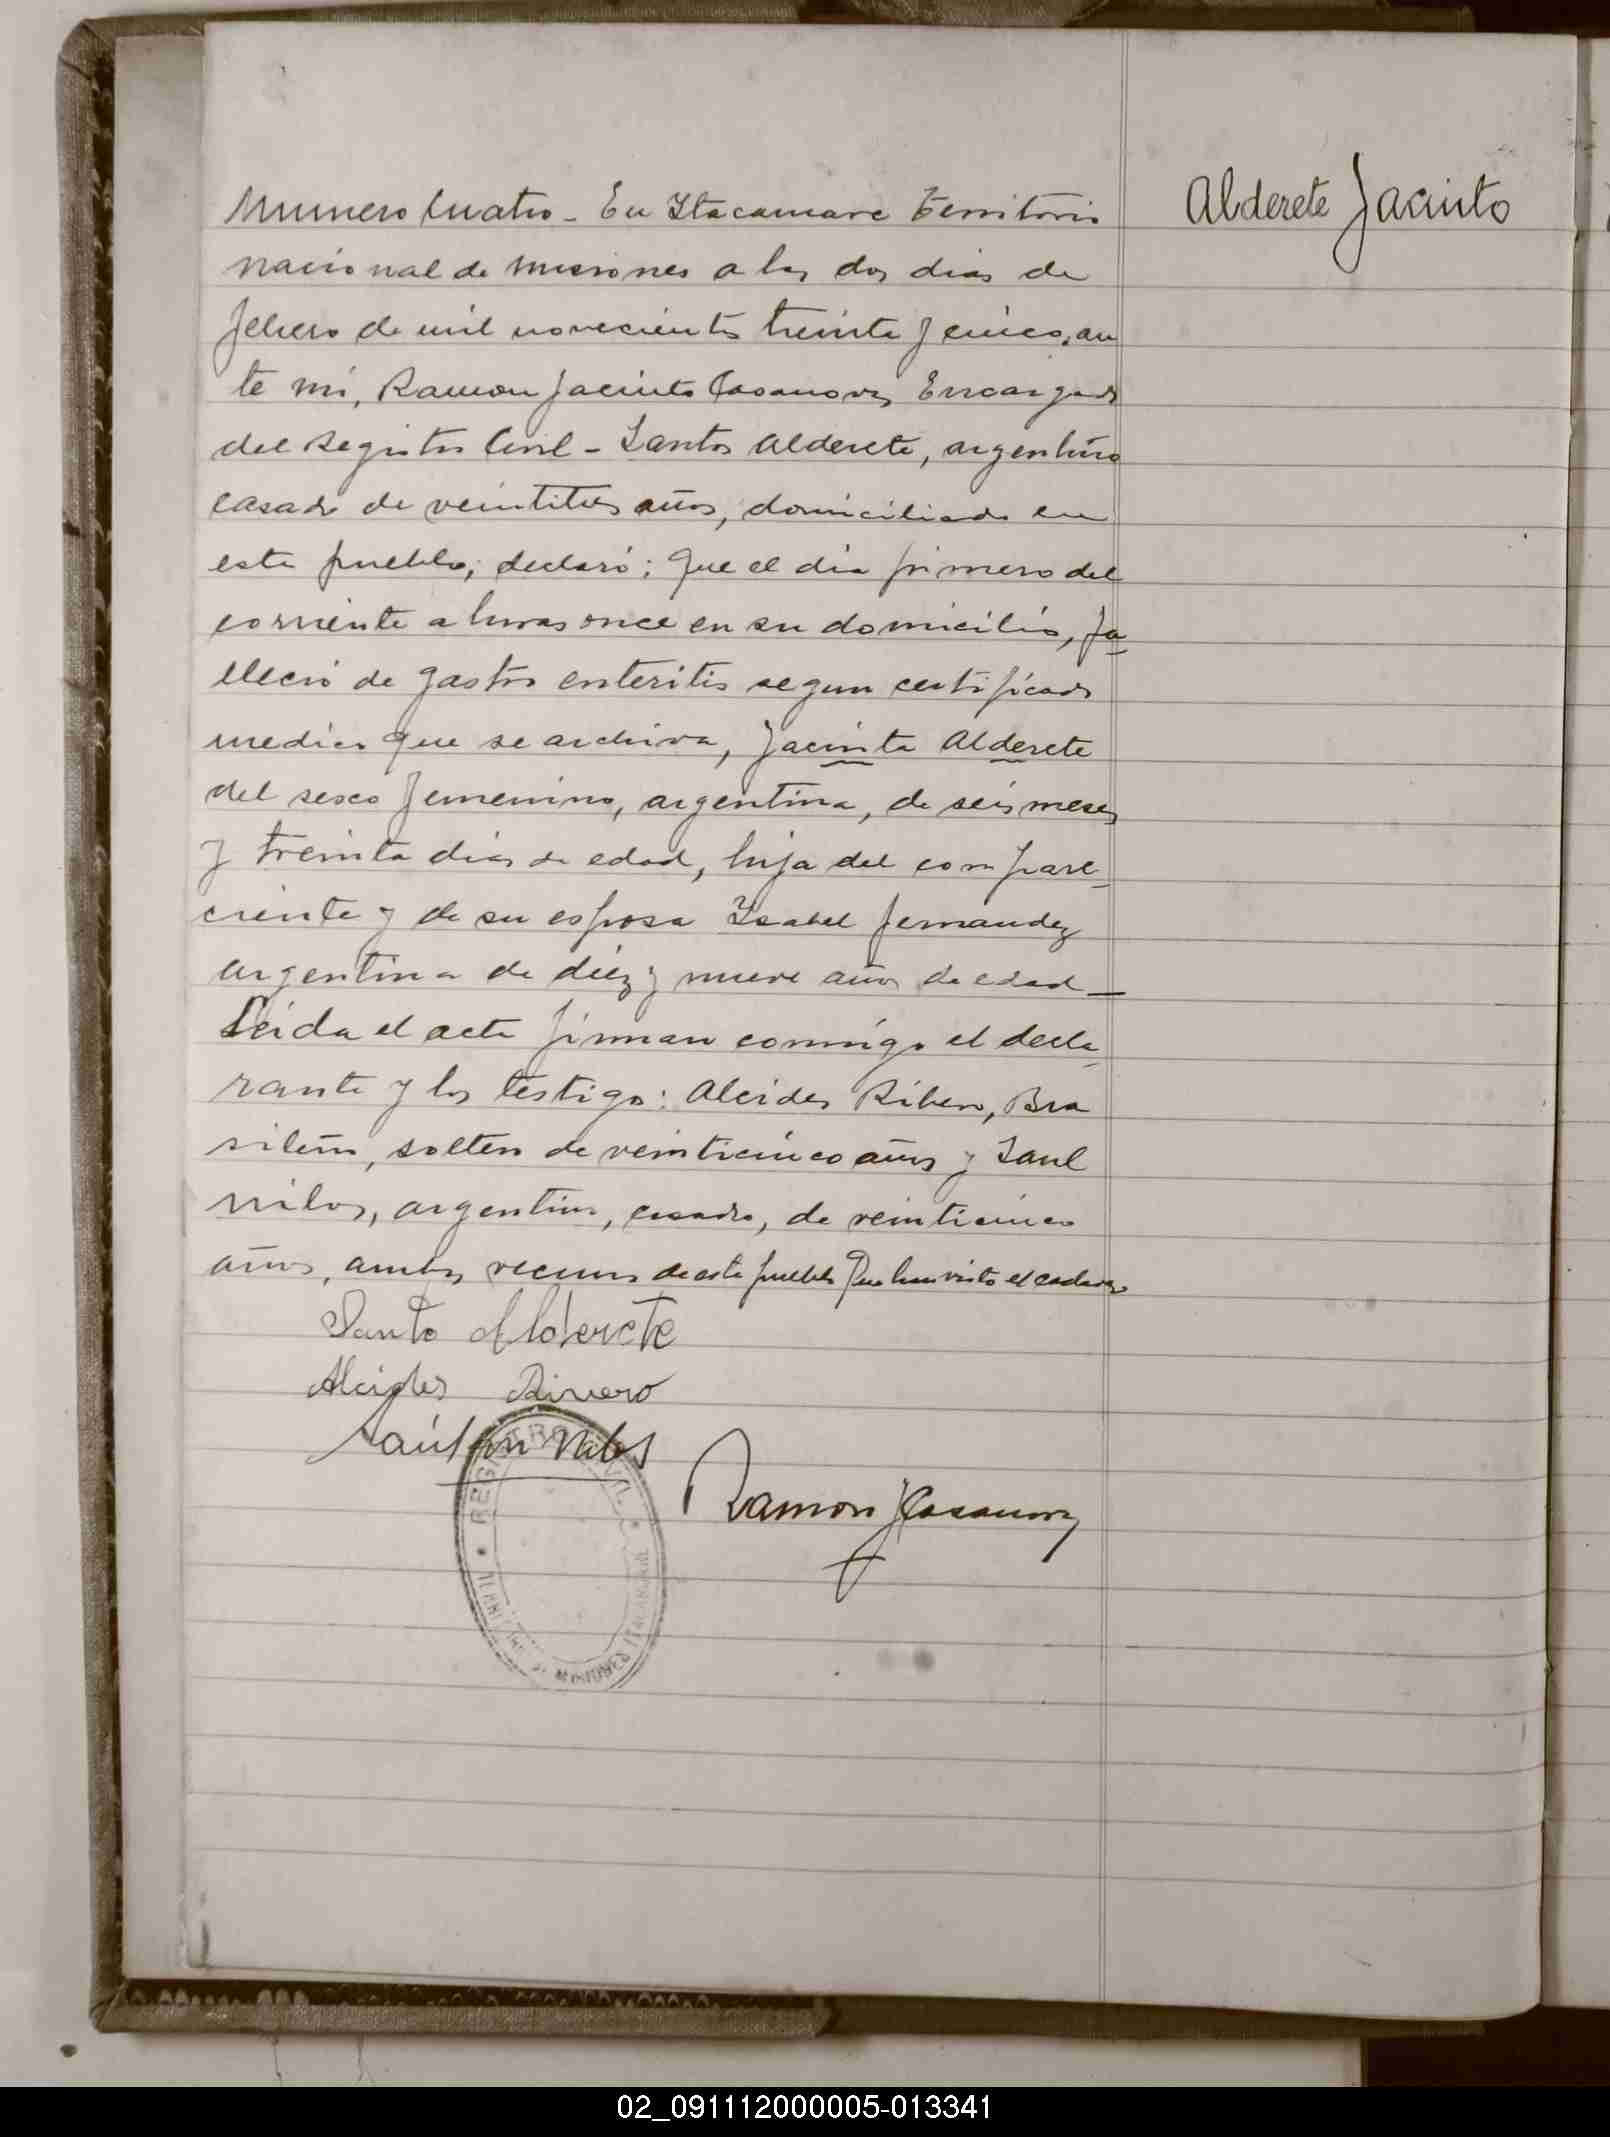 Numero Cuatro - En Itacaruare Territorio
nacional de Misiones a los dos dias de
febrero de mil novecientos treinta y cinco, an
te mi, Ramon Jacinto Casanova, Encargado
del Registro Civil - Santos Alderete, argentino
casado de veintitres años, domiciliado en
este pueblo, declaró: Que el dia primero del
corriente a horas once en su domicilio, fa-
lleció de gastro enteritis segun certificado
medico que se archiva, Jacinta Alderete
del sexo femenino, argentina, de seis meses
y treinta dias de edad, hija del compare-
ciente y de su esposa Isabel Fernandez
argentina de diez y nueve años de edad -
Leida el acta firman conmigo el decla-
rante y los testigo: Alcides Ribero, Bra
sileño, soltero de veinticinco años y Saul
Milos, argentino, casado, de veinticinco
años, ambos vecinos de este pueblo Que han visto el cadaver
Santo Alderete
Alcides Rivero
Ramon J Casanova
REGISTRO CIVIL
MISIONES
Alderete Jacinto
02_091112000005-013341